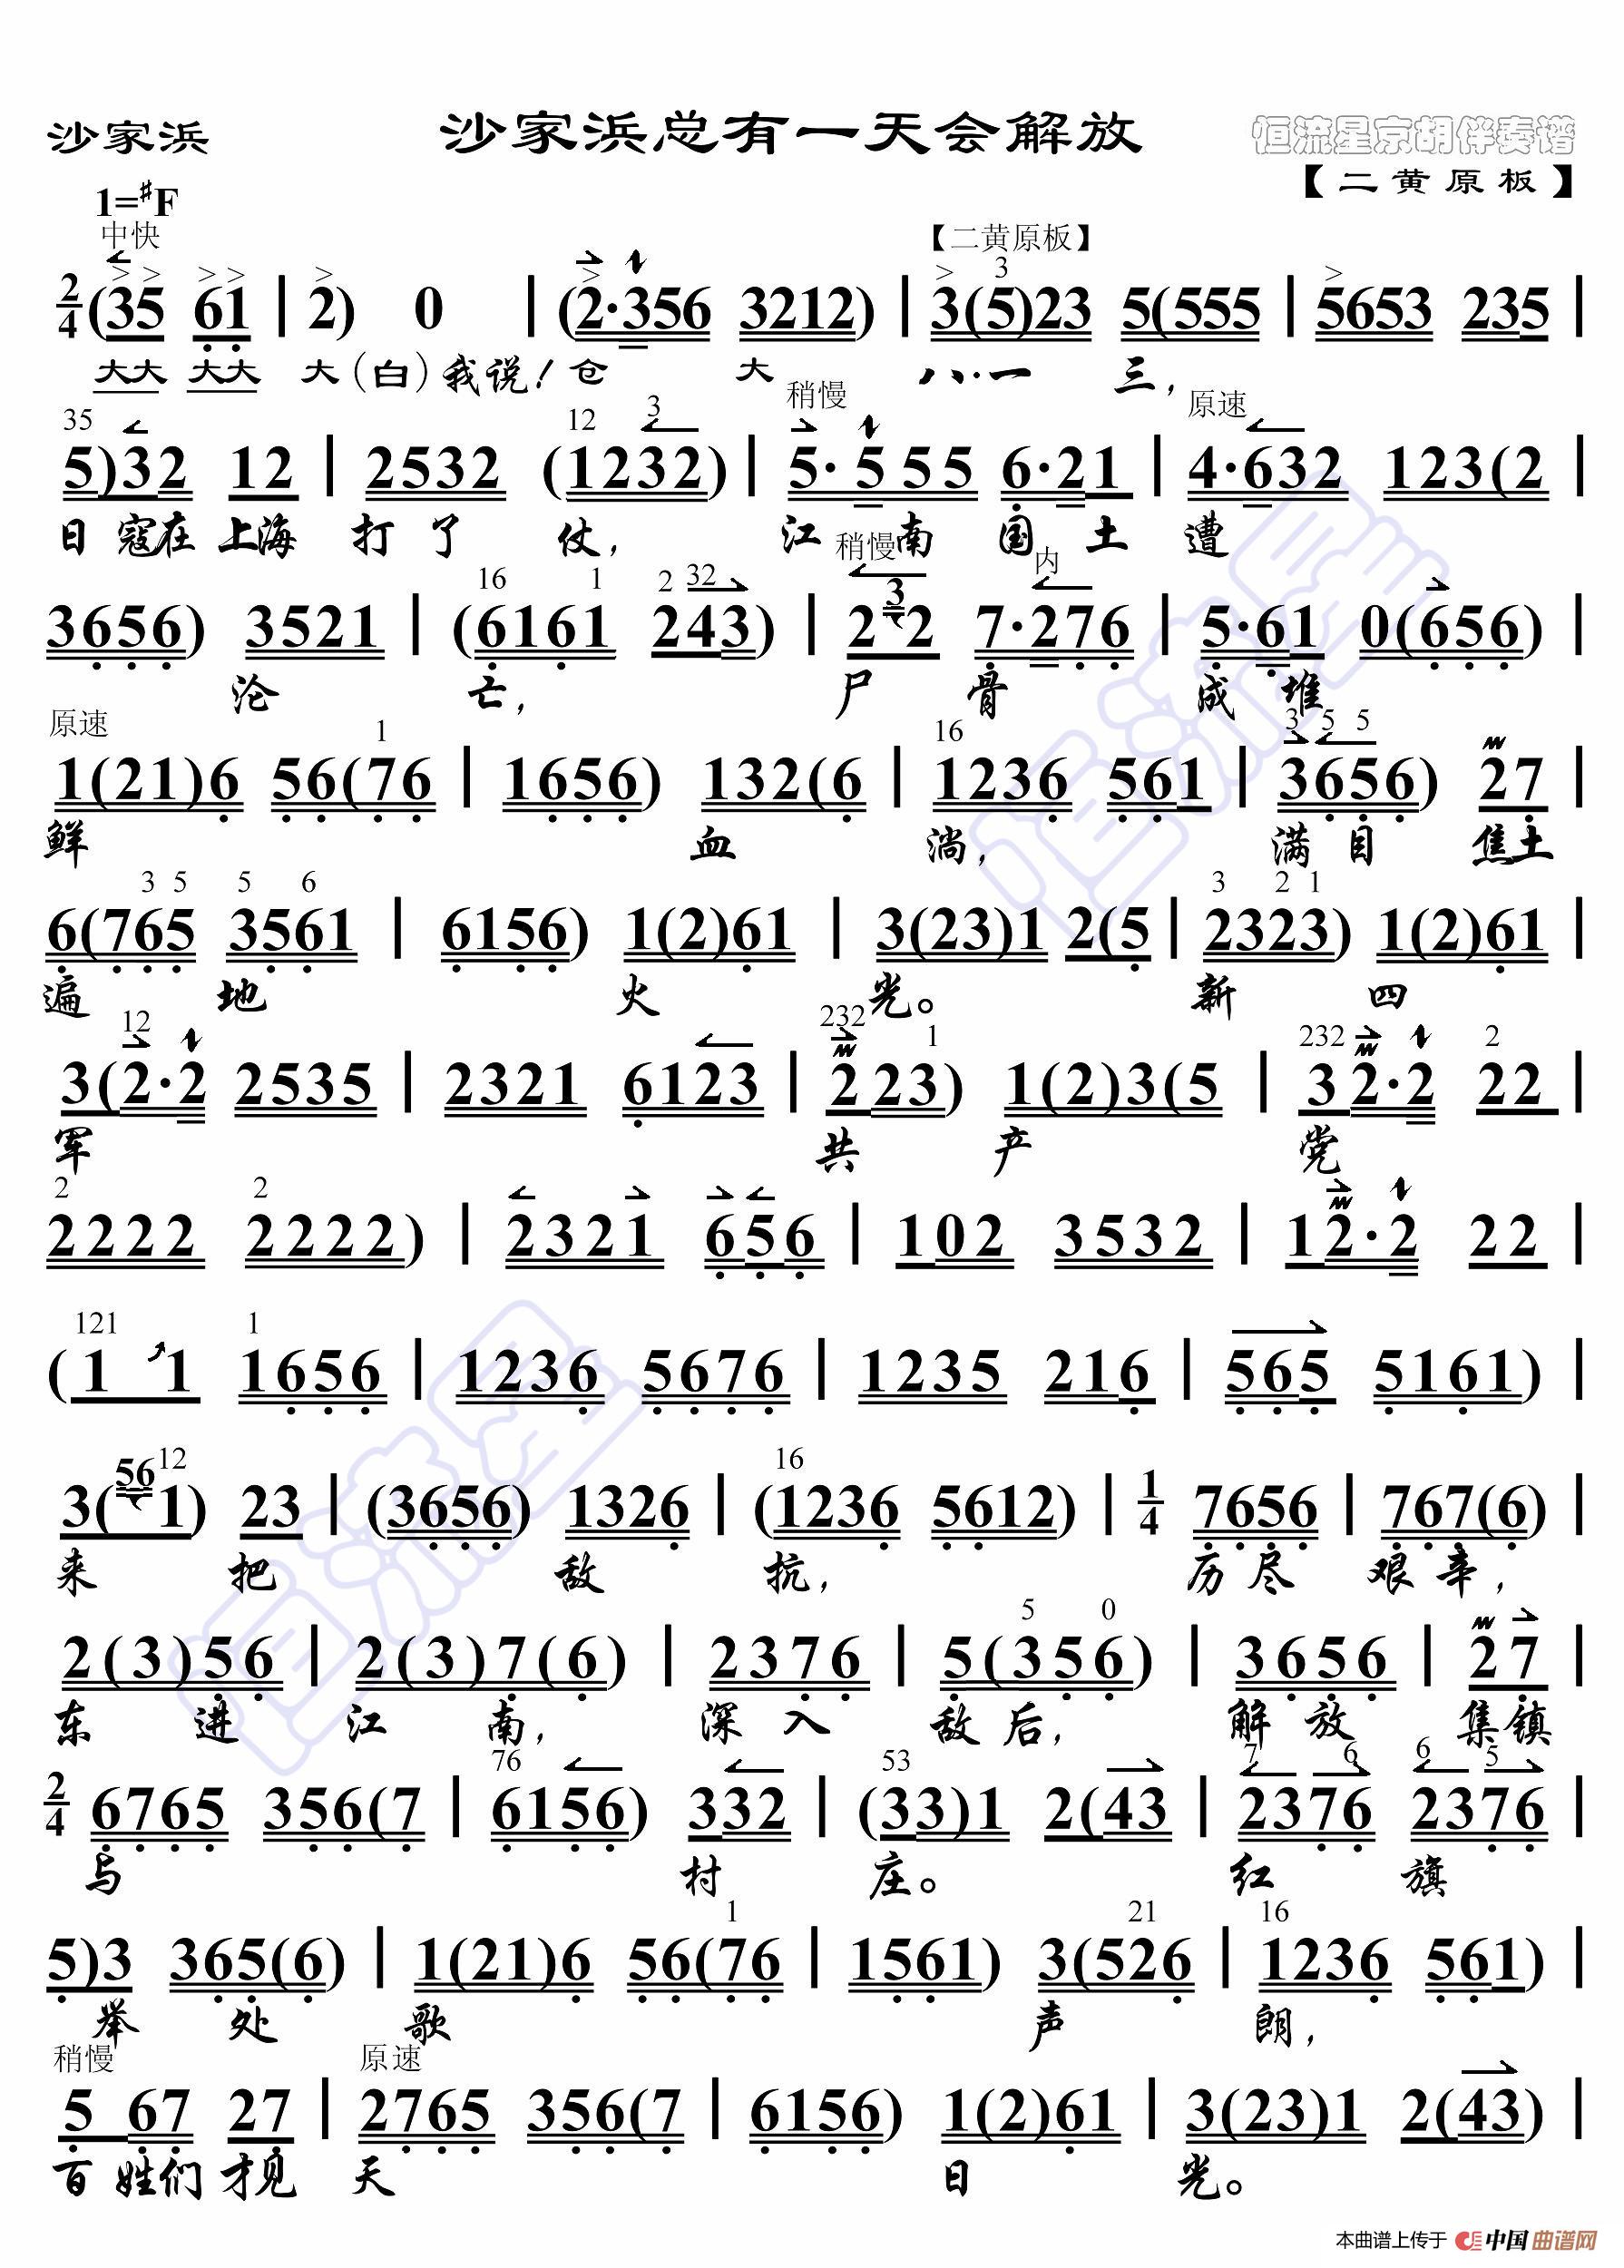 沙家浜 沙家浜总有一天会解放 恒流星京胡伴奏谱
【二黄原板】
1=#F
中快 【二黄原板】
3
2/4 (35 61 | 2) 0 | (2·356 3212) | 3(5)23 5(555 | 5653 235 |
大大 大大 大(白)我说!仓 大 八·一 三,
35 12 3 稍慢 原速
5)32 12 | 2532 (1232) | 5·555 6·21 | 4·632 123(2 |
日寇在上海打了仗, 江南国土遭
稍慢 内
16 1 2 32 3
3656) 3521 | (6161 243) | 2 2 7·276 | 5·61 0(656) |
沦 亡, 尸骨 成堆
原速 1 16 3 5 5
1(21)6 56(76 | 1656) 132(6 | 1236 561 | 3656) 27 |
鲜 血 淌, 满目 焦土
3 5 5 6 3 2 1
6(765 3561 | 6156) 1(2)61 | 3(23)1 2(5 | 2323) 1(2)61 |
遍 地 火 光。 新 四
12 232 1 232 2
3(2·2 2535 | 2321 6123 | 223) 1(2)3(5 | 32·2 22 |
军 共 产 党
2 2
2222 2222) | 2321 656 | 102 3532 | 12·2 22 |
121 1
(1 1 1656 | 1236 5676 | 1235 216 | 565 5161) |
56 12 16
3( 1) 23 | (3656) 1326 | (1236 5612) | 1/4 7656 | 767(6) |
来 把 敌 抗, 历尽 艰辛,
5 0
2(3)56 | 2(3)7(6) | 2376 | 5(356) | 3656 | 27 |
东 进 江 南, 深 入 敌后, 解放 集镇
76 53 7 6 6 5
2/4 6765 356(7 | 6156) 332 | (33)1 2(43 | 2376 2376 |
与 村 庄。 红 旗
1 21 16
5)3 365(6) | 1(21)6 56(76 | 1561) 3(526 | 1236 561) |
举 处 歌 声 朗,
稍慢 原速
5 67 27 | 2765 356(7 | 6156) 1(2)61 | 3(23)1 2(43) |
百姓们才见 天 日 光。
本曲谱上传于 中国曲谱网
恒流星
恒流星